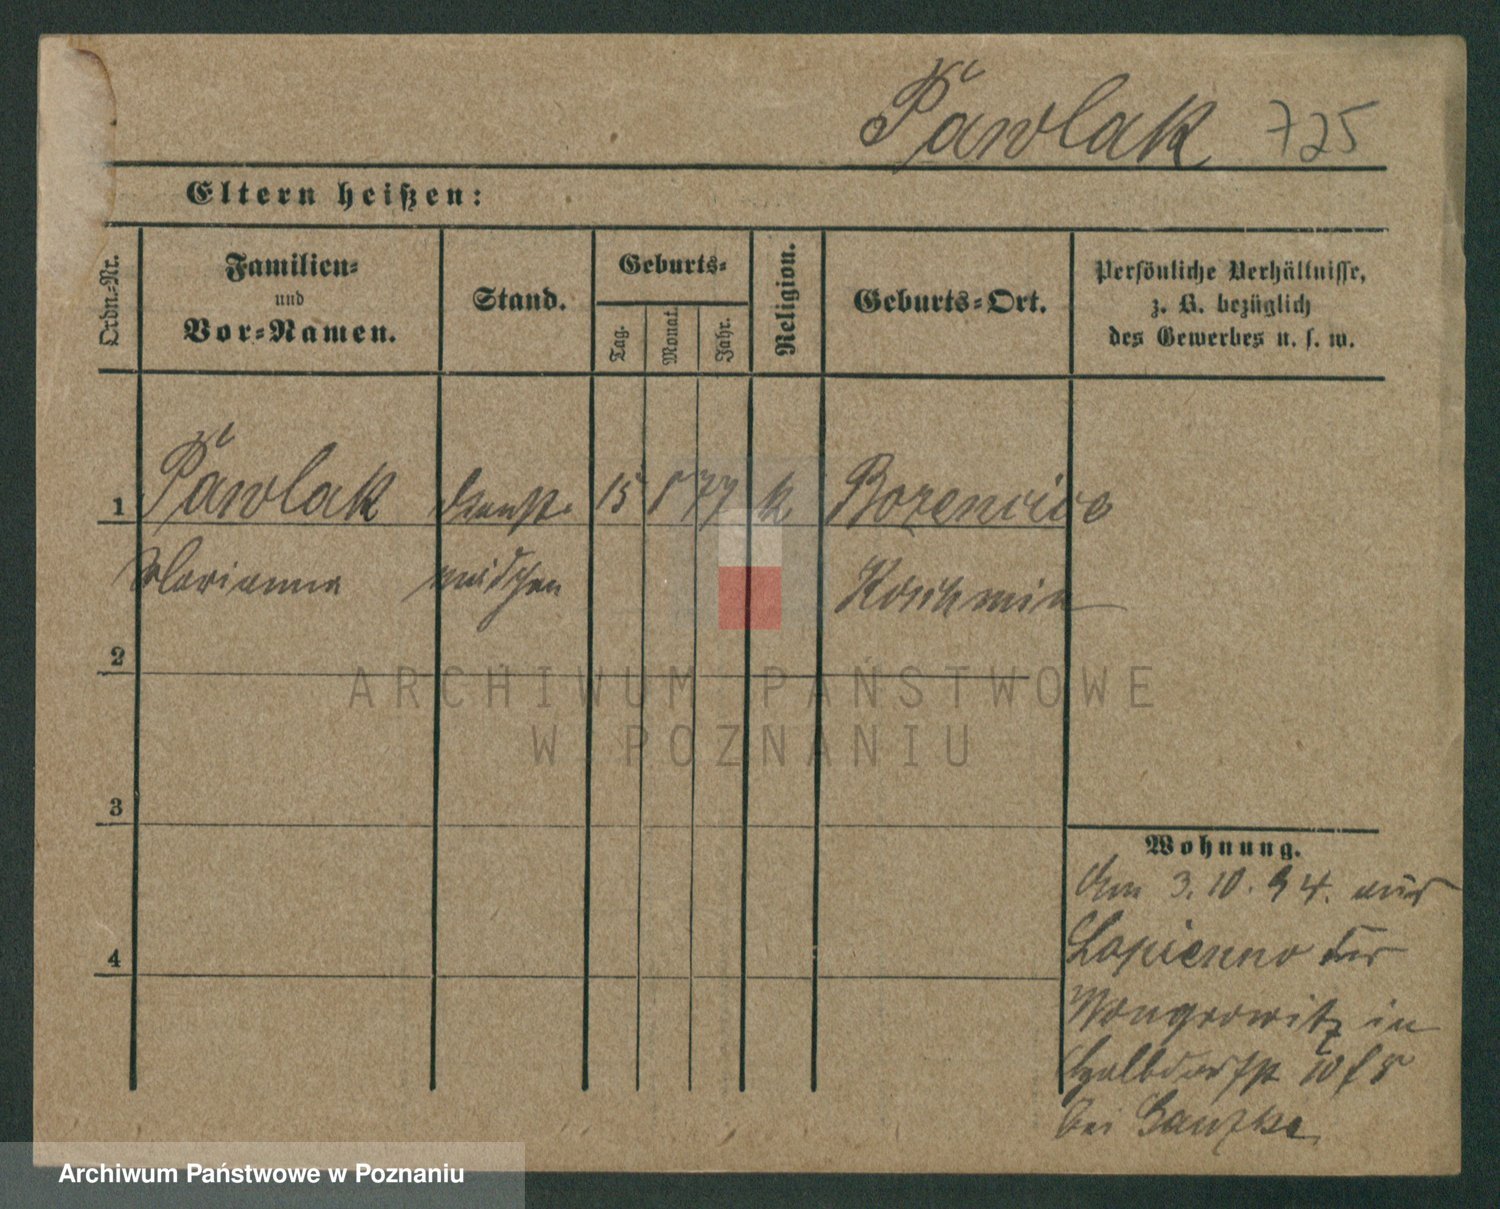 Pawlak 725
Eltern heißen:
Ordn.-Nr.
Familien-
und
Vor-Namen.
Stand.
Geburts-
Tag.
Monat.
Jahr.
Religion.
Geburts-Ort.
Persönliche Verhältnisse,
z. B. bezüglich
des Gewerbes u. s. w.
1 Pawlak Dienst- 15 8 77 k Borzencice
Marianna mädchen Koschmin
2
3
4
Wohnung.
Am 3.10.94. aus
Lopienno Kr
Wongrowitz in
Halbdorfstr 10
bei
ARCHIWUM PAŃSTWOWE
W POZNANIU
Archiwum Państwowe w Poznaniu